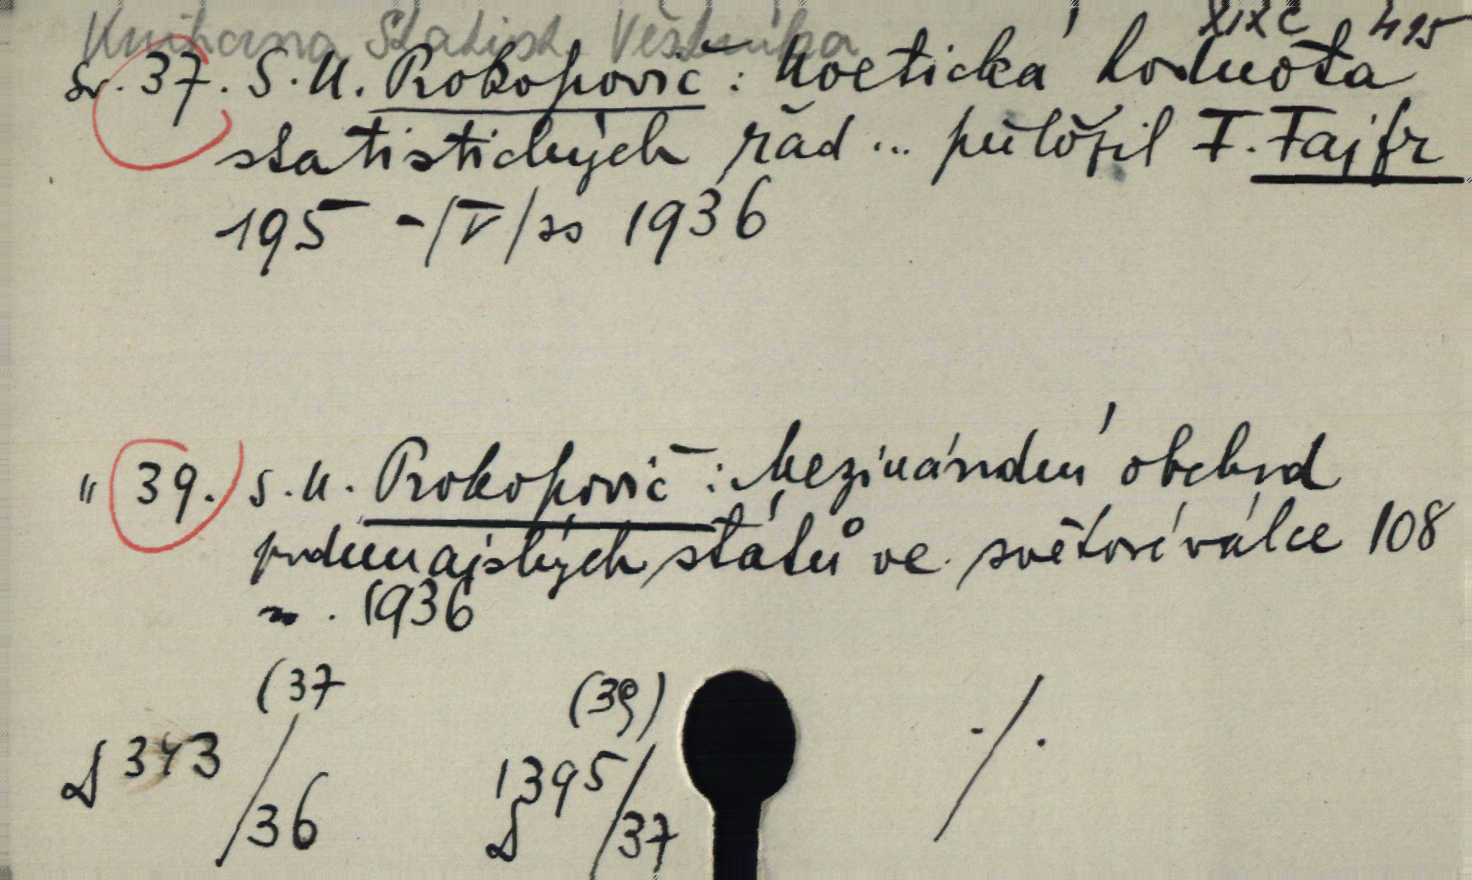 Knihovna Statist. Věstníka XIX C 495
sv. 37. S. N. Prokopovič: Noetická hodnota
statistických řad ... přeložil F. Fajfr
195 -/V/ ss 1936
" 39. S. N. Prokopovič: Mezinárodní obchod
podunajských států ve světové válce 108
ss. 1936
(37 (39)
D 343/36 D 1395/37 ./.